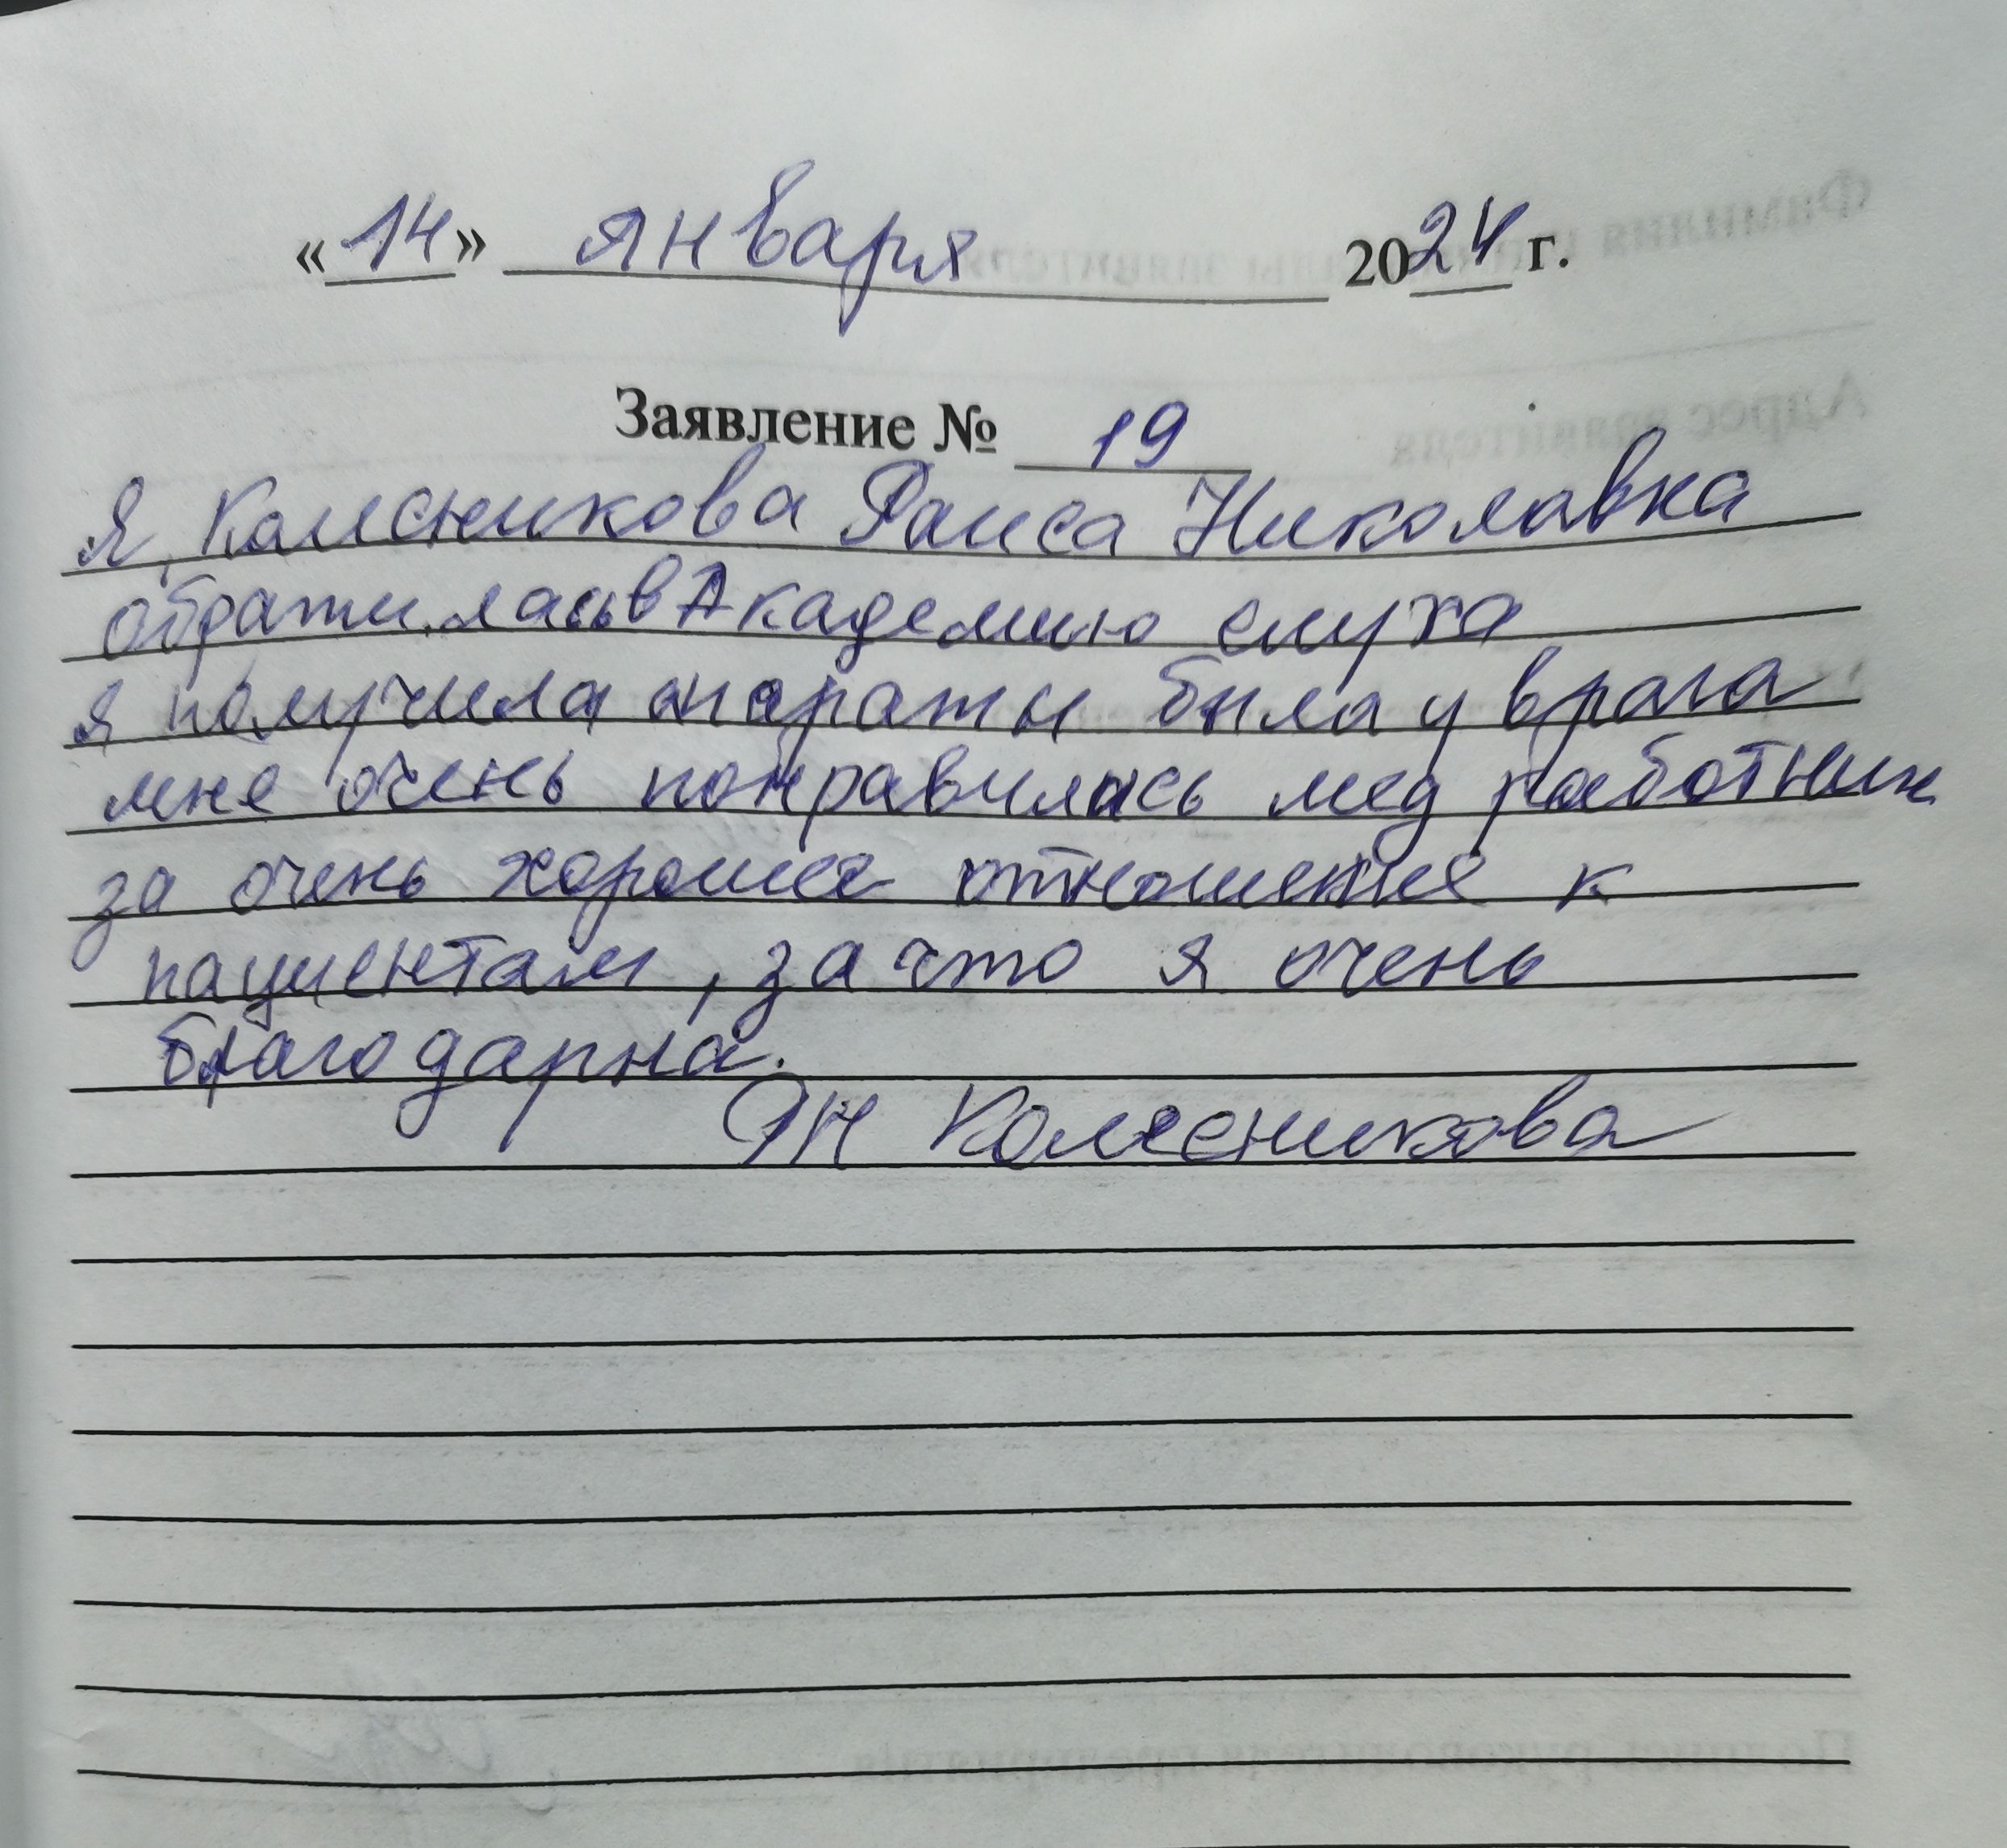 «14» января 2024 г.
Заявление № 19
Я, Колисникова Раиса Николавна
обратилась в Академию слуха
я получила апараты была у врача
мне очень понравилась мед работник
за очень хорошее отношение к
пациентам, за что я очень
благодарна.
РН Колесникова